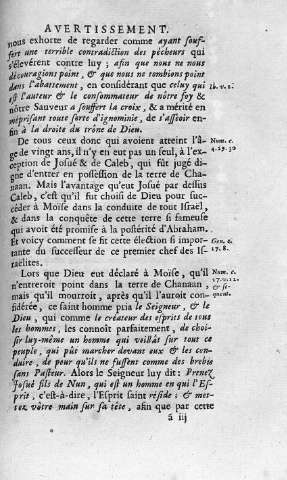 AVERTISSEMENT.
nous exhorte de regarder comme ayant souf-
fert une terrible contradiction des pécheurs qui
s'élevérent contre luy ; afin que nous ne nous
décourageions point, & que nous ne tombions point
dans l'abattement, en considérant que celuy qui Ib. v. 2.
est l'auteur & le consommateur de nôtre foy &
nôtre Sauveur a souffert la croix, & a mérité en
méprisant toute sorte d'ignominie, de s'asseoir en-
fin à la droite du trône de Dieu.
De tous ceux donc qui avoient atteint l'â- Num. c.
ge de vingt ans, il n'y en eut pas un seul, à l'ex- 4. 29. 30
ception de Josué & de Caleb, qui fût jugé di-
gne d'entrer en possession de la terre de Cha-
naan. Mais l'avantage qu'eut Josué par dessus
Caleb, c'est qu'il fut choisi de Dieu pour suc-
céder à Moïse dans la conduite de tout Israel,
& dans la conquête de cette terre si fameuse
qui avoit été promise à la postérité d'Abraham.
Et voicy comment se fit cette élection si impor- Gen. c.
tante du successeur de ce premier chef des Is- 17. 8.
raëlites.
Lors que Dieu eut déclaré à Moïse, qu'il Num. c.
n'entreroit point dans la terre de Chanaan,
mais qu'il mourroit, après qu'il l'auroit con- & se-
sidérée, ce saint homme pria le Seigneur, & le quent.
Dieu, qui comme le créateur des esprits de tous
les hommes, les connoît parfaitement, de choi-
sir luy-même un homme qui veillât sur tout ce
peuple, qui pût marcher devant eux & les con-
duire, de peur qu'ils ne fussent comme des brebis
sans Pasteur. Alors le Seigneur luy dit : Prenez
Josué fils de Nun, qui est un homme en qui l'Es-
prit, c'est-à-dire, l'Esprit saint réside ; & met-
tez vôtre main sur sa tête, afin que par cette
ã iij